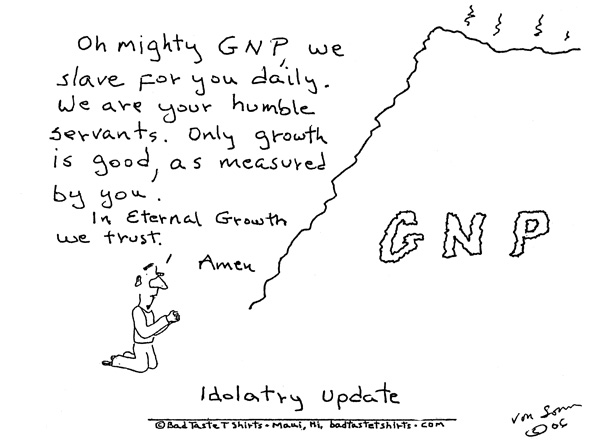 Oh mighty GNP, we
slave for you daily.
We are your humble
servants. Only growth
is good, as measured
by you.
In Eternal Growth
we trust.
Amen
GNP
Idolatry Update
© Bad Taste T Shirts • Maui, Hi, badtastetshirts.com